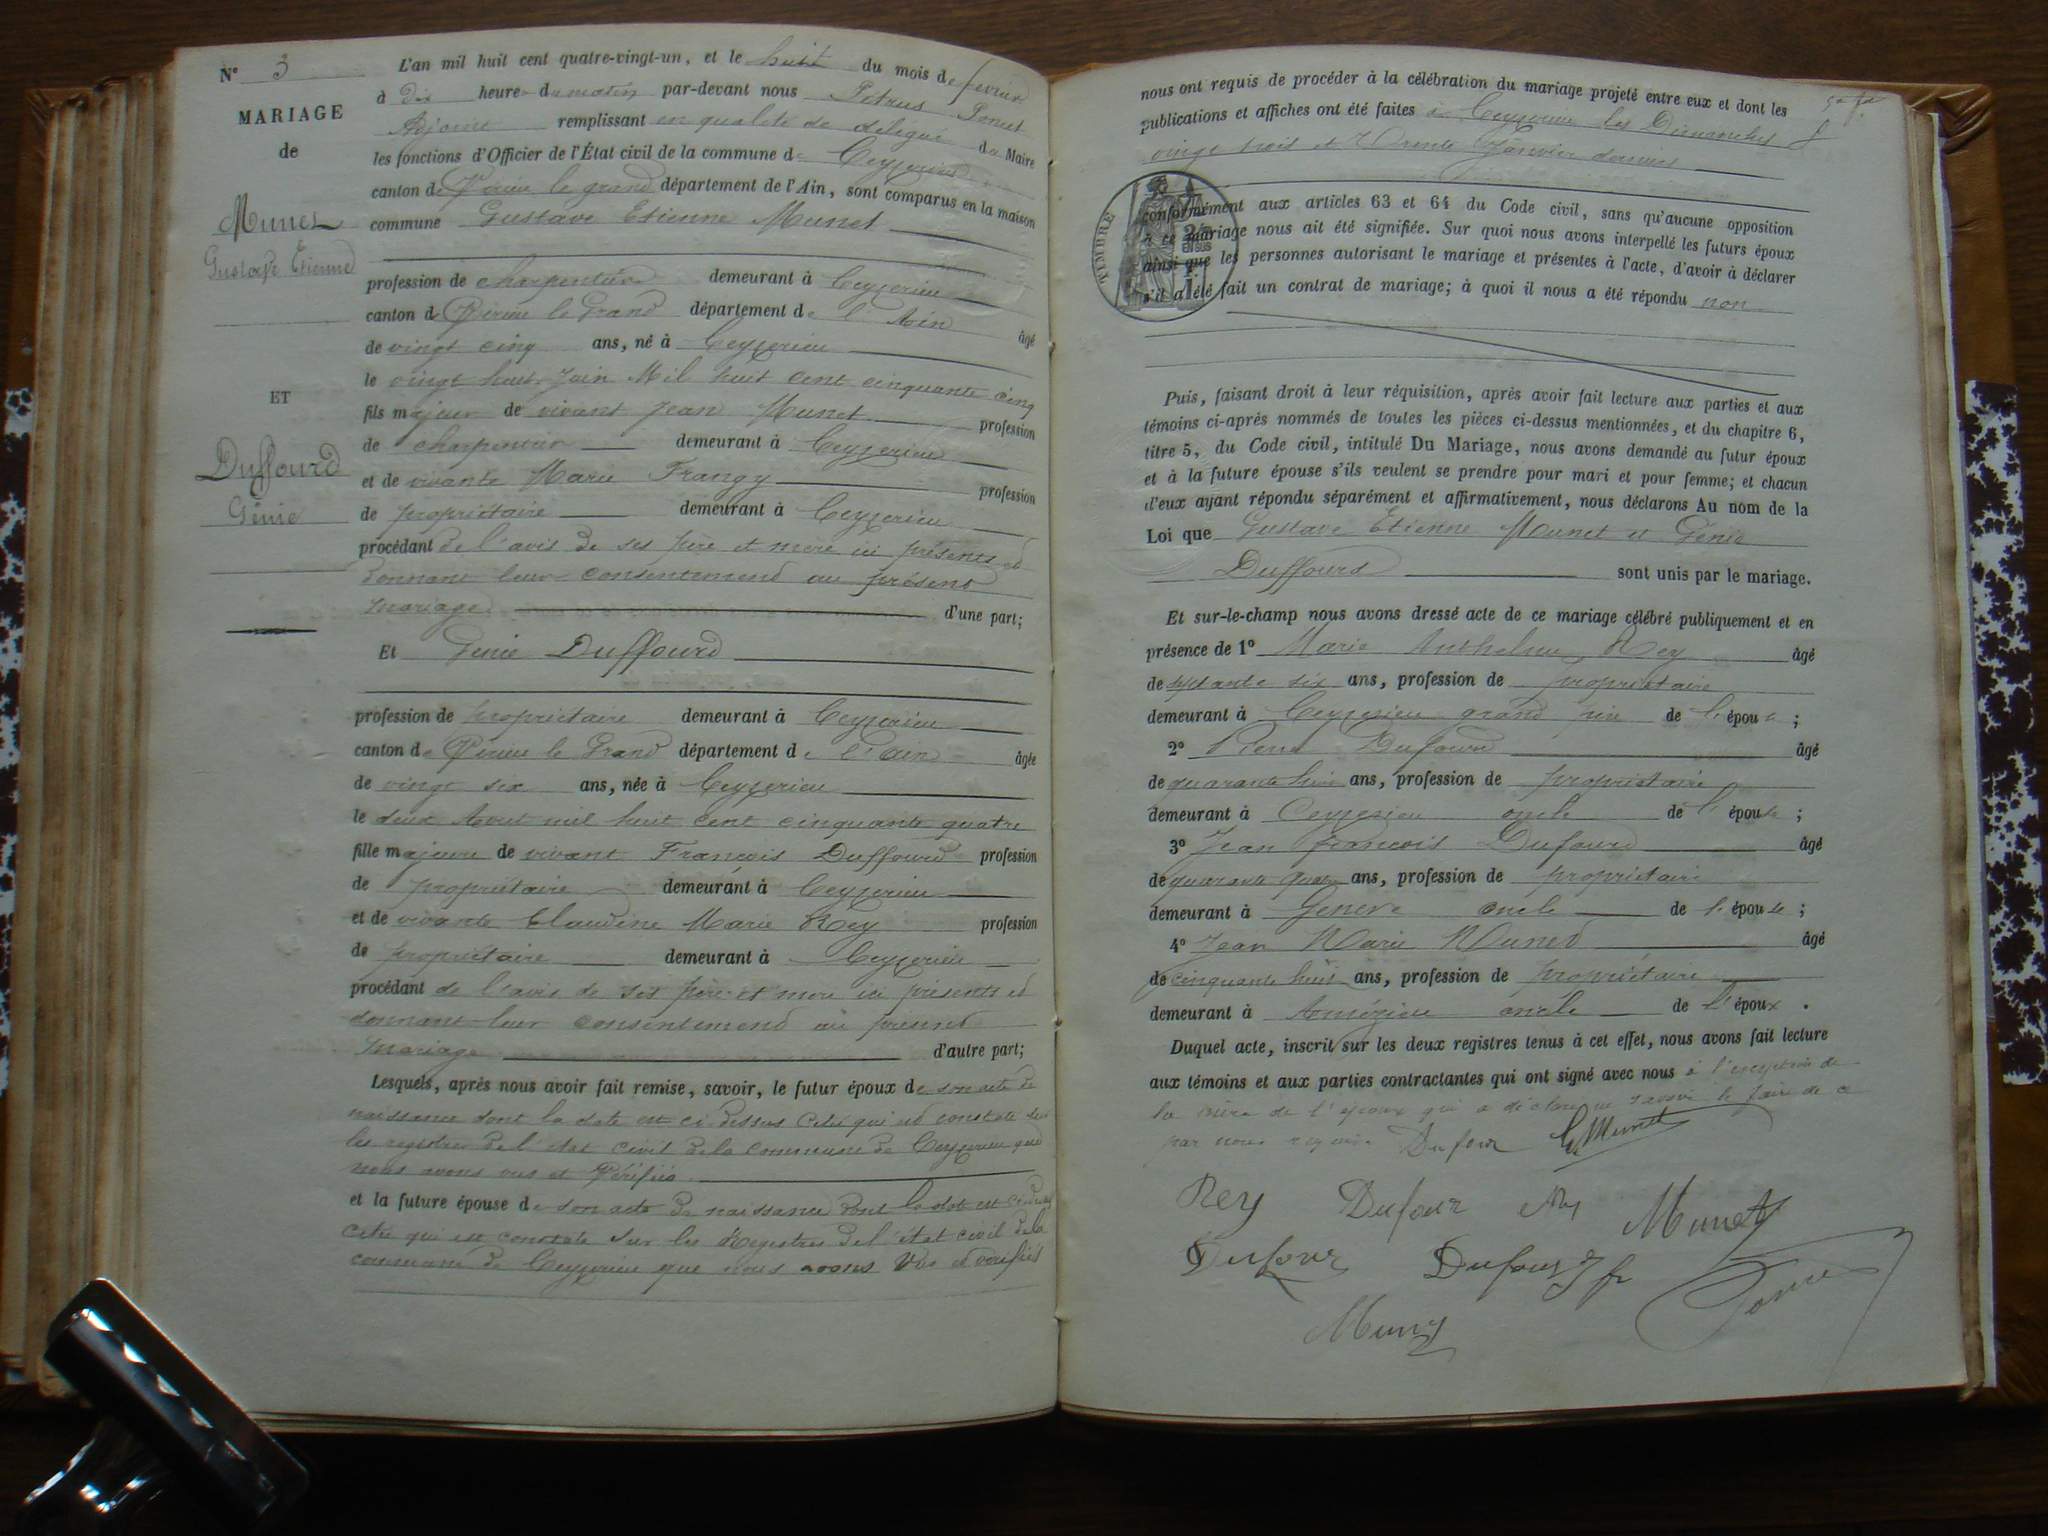 N° 3
MARIAGE
de
Munet
Gustave Etienne
ET
Duffourd
Génie
L'an mil huit cent quatre-vingt-un, et le huit du mois de fevrier
à dix heures du matin par-devant nous Petrus Poncet
Adjoint remplissant en qualité de délégué du Maire
les fonctions d'Officier de l'État civil de la commune de Ceyzerieu
canton de Virieu le grand département de l'Ain, sont comparus en la maison
commune Gustave Etienne Munet
profession de charpentier demeurant à Ceyzerieu
canton de Virieu le Grand département de l'Ain âgé
de vingt cinq ans, né à Ceyzerieu
le vingt huit Juin Mil huit cent cinquante cinq
fils majeur de vivant Jean Munet profession
de charpentier demeurant à Ceyzerieu
et de vivante Marie Frangy profession
de propriétaire demeurant à Ceyzerieu
procédant de l'avis de ses père et mère ici présents et
donnant leur consentement au présent
mariage d'une part;
Et Génie Duffourd
profession de propriétaire demeurant à Ceyzerieu
canton de Virieu le Grand département de l'Ain âgée
de vingt six ans, née à Ceyzerieu
le deux Aout mil huit cent cinquante quatre
fille majeure de vivant François Duffourd profession
de propriétaire demeurant à Ceyzerieu
et de vivante Claudine Marie Rey profession
de propriétaire demeurant à Ceyzerieu
procédant de l'avis de ses père et mère ici présents et
donnant leur consentement au présent
mariage d'autre part;
Lesquels, après nous avoir fait remise, savoir, le futur époux de son acte de
naissance dont la date est ci dessus Celui qui est constaté sur
les registres de l'état civil de la commune de Ceyzerieu que
nous avons vus et Vérifiés
et la future épouse de son acte de naissance dont la date est ci dessus
celui qui est constaté sur les Registres de l'état civil de la
commune de Ceyzerieu que nous avons Vus et vérifiés
nous ont requis de procéder à la célébration du mariage projeté entre eux et dont les
publications et affiches ont été faites à Ceyzerieu les Dimanches
vingt trois et Trente Janvier dernier
TIMBRE
EN SUS
conformément aux articles 63 et 64 du Code civil, sans qu'aucune opposition
à ce mariage nous ait été signifiée. Sur quoi nous avons interpellé les futurs époux
ainsi que les personnes autorisant le mariage et présentes à l'acte, d'avoir à déclarer
s'il a été fait un contrat de mariage; à quoi il nous a été répondu non
Puis, faisant droit à leur réquisition, après avoir fait lecture aux parties et aux
témoins ci-après nommés de toutes les pièces ci-dessus mentionnées, et du chapitre 6,
titre 5, du Code civil, intitulé Du Mariage, nous avons demandé au futur époux
et à la future épouse s'ils veulent se prendre pour mari et pour femme; et chacun
d'eux ayant répondu séparément et affirmativement, nous déclarons Au nom de la
Loi que Gustave Etienne Munet et Génie
Duffourd sont unis par le mariage.
Et sur-le-champ nous avons dressé acte de ce mariage célébré publiquement et en
présence de 1° Marie Anthelme Rey âgé
de septante six ans, profession de propriétaire
demeurant à Ceyzerieu grand père de l'épouse ;
2° Pierre Dufourd âgé
de quarante huit ans, profession de propriétaire
demeurant à Ceyzerieu oncle de l'épouse ;
3° Jean françois Dufourd âgé
de quarante quatre ans, profession de propriétaire
demeurant à Genève oncle de l'épouse ;
4° Jean Marie Munet âgé
de cinquante huit ans, profession de propriétaire
demeurant à Amézieu oncle de l'époux .
Duquel acte, inscrit sur les deux registres tenus à cet effet, nous avons fait lecture
aux témoins et aux parties contractantes qui ont signé avec nous à l'exception de
la mère de l'époux qui a déclaré ne savoir le faire de ce
par nous requise Dufour Munet
Rey Dufour Munet
Dufour Dufour Jn fr
Munet Poncet